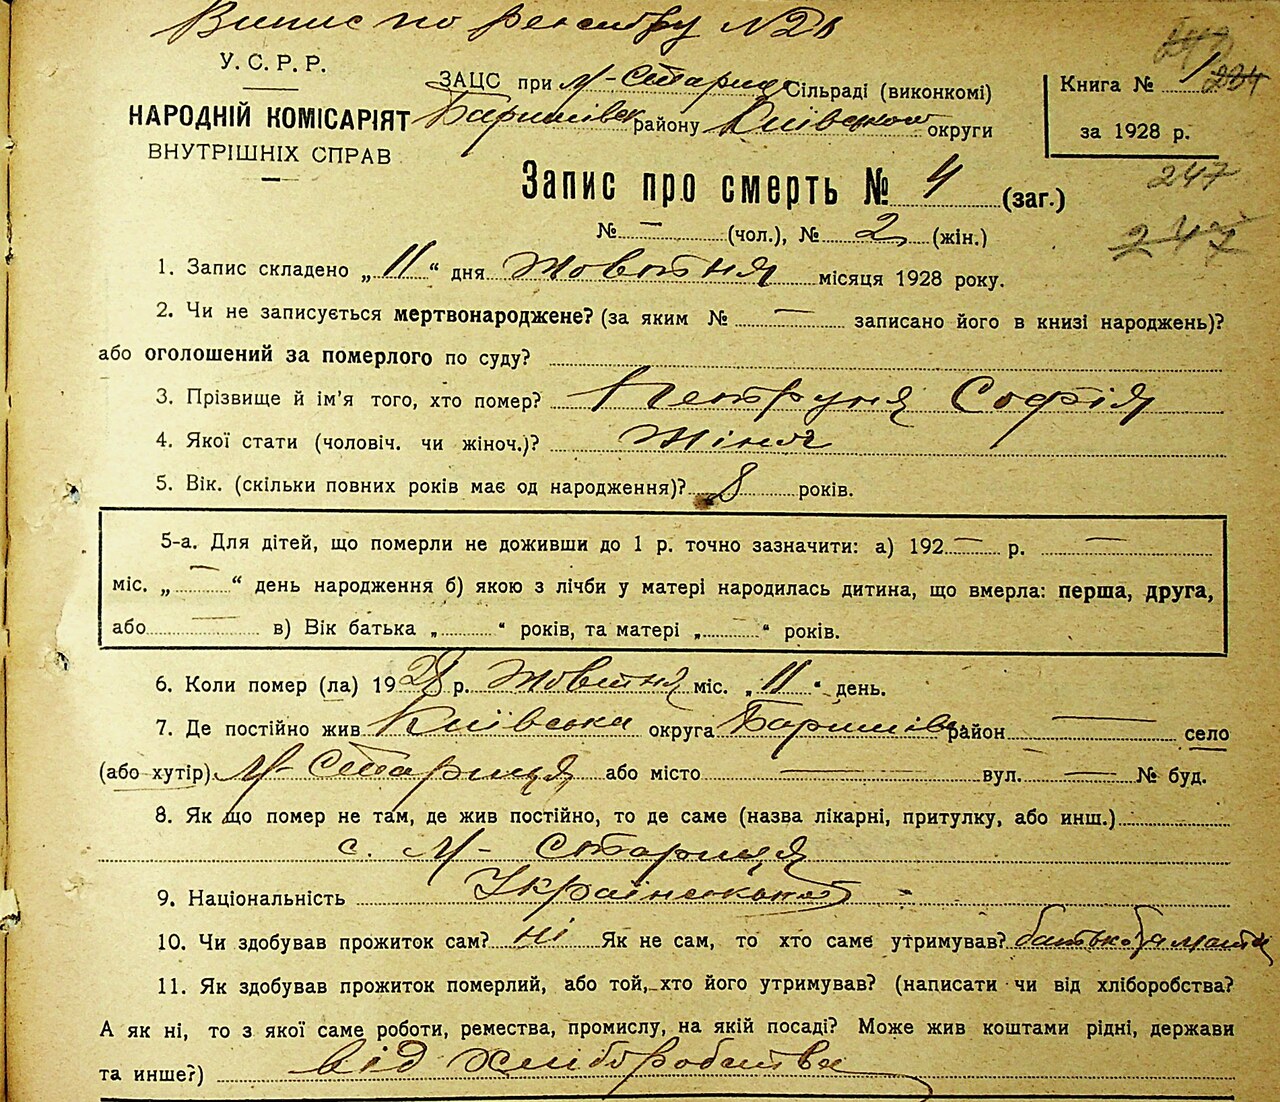 Випис по реєстру № 21
У. С. Р. Р.
НАРОДНІЙ КОМІСАРІЯТ
ВНУТРІШНІХ СПРАВ
ЗАЦС при М-Стариця Сільраді (виконкомі)
Баришівськ району Київської округи
Книга №
за 1928 р.
247
224
247
247
Запис про смерть № 4 (заг.)
№ — (чол.), № 2 (жін.)
1. Запис складено „11“ дня Жовтня місяця 1928 року.
2. Чи не записується мертвонароджене? (за яким № — записано його в книзі народжень)?
або оголошений за померлого по суду?
3. Прізвище й ім'я того, хто помер? Петруня Софія
4. Якої стати (чоловіч. чи жіноч.)? Жіноч
5. Вік. (скільки повних років має од народження)? 8 років.
5-а. Для дітей, що померли не доживши до 1 р. точно зазначити: а) 192 — р. —
міс. „ — “ день народження б) якою з лічби у матері народилась дитина, що вмерла: перша, друга,
або — в) Вік батька „ “ років, та матері „ — “ років.
6. Коли помер (ла) 1928 р. Жовтня міс. „11“ день.
7. Де постійно жив Київська округа Баришів район — село
(або хутір) М-Стариця або місто — вул. — № буд.
8. Як що помер не там, де жив постійно, то де саме (назва лікарні, притулку, або инш.)
с. М-Стариця
9. Національність Українська
10. Чи здобував прожиток сам? ні Як не сам, то хто саме утримував? батько та мати
11. Як здобував прожиток померлий, або той, хто його утримував? (написати чи від хліборобства?
А як ні, то з якої саме роботи, ремества, промислу, на якій посаді? Може жив коштами рідні, держави
та инше?) від хліборобства